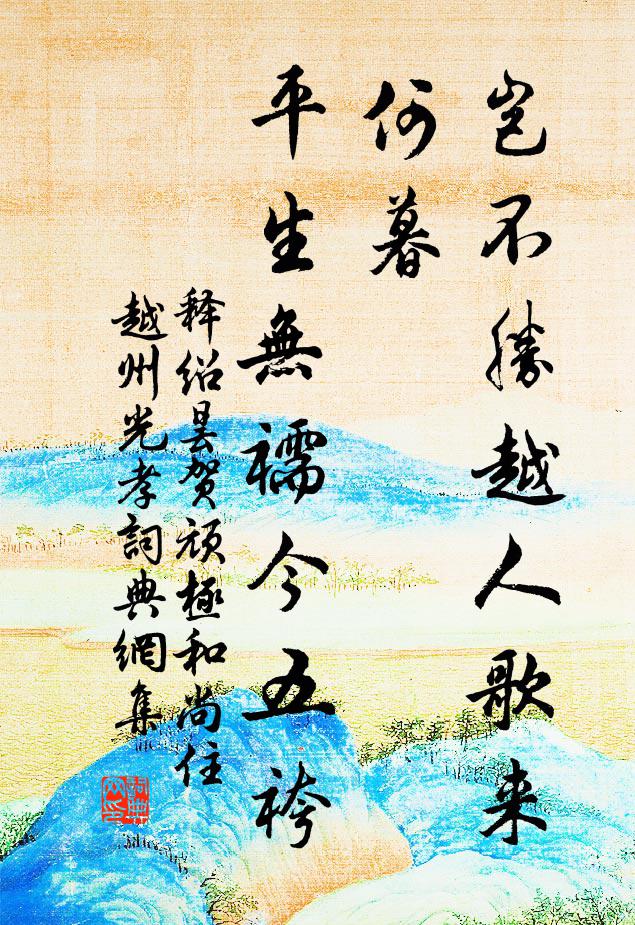 岂不勝越人歌来
何暮
平生無襦今五袴
释绍昙贺頑極和尚住
越州光孝詞典網集